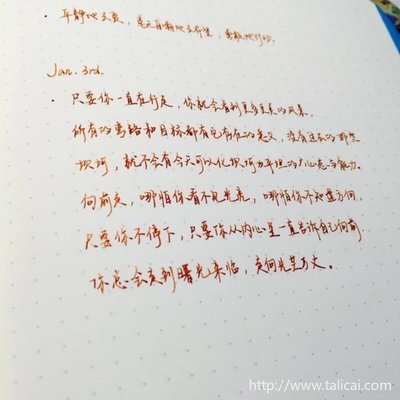 · 平静地去爱，毫无盲目地去希望，勇敢地行动。
Jan. 3rd.
· 只要你一直在行走，你就会看到更多更美的风景，
所有的离路和目标都有它存在的意义，没有过去的那些
坎坷，就不会有今天可以化坎坷为平坦的心态与能力。
向前走，哪怕你看不见光亮，哪怕你不知道方向，
只要你不停下，只要你从内心里一直告诉自己向前，
你总会走到曙光来临，走向光芒万丈。
http://www.talicai.com